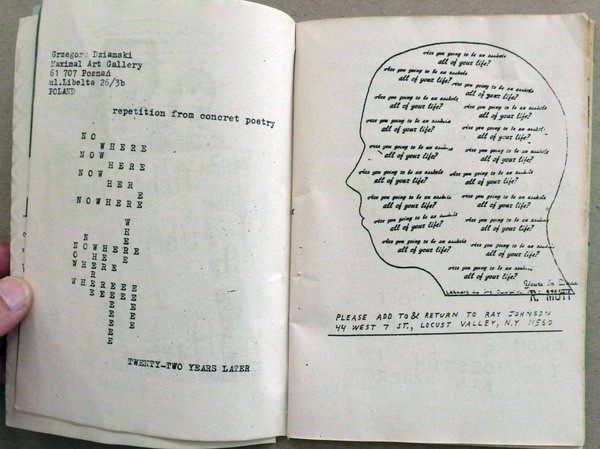 Grzegorz Dziamski
Maximal Art Gallery
61 707 Poznań
ul.Libelta 26/3b
POLAND
repetition from concret poetry
N O
W H E R E
N O W
H E R E
N O W
H E R
E
N O W H E R E
W
H
N E
N O W H E R E
O H E
W H E R E
R
W H E R E E E E
E E E E E
E E E
E E
E E
E
E
TWENTY-TWO YEARS LATER
Are you going to be an asshole
all of your life?
Are you going to be an asshole
all of your life?
Are you going to be an asshole
all of your life?
Are you going to be an asshole
all of your life?
Are you going to be an asshole
all of your life?
Are you going to be an asshole
all of your life?
Are you going to be an asshole
all of your life?
Are you going to be an asshole
all of your life?
Are you going to be an asshole
all of your life?
Are you going to be an asshole
all of your life?
Are you going to be an asshole
all of your life?
Are you going to be an asshole
all of your life?
Are you going to be an asshole
all of your life?
Are you going to be an asshole
all of your life?
Are you going to be an asshole
all of your life?
Are you going to be an asshole
all of your life?
Are you going to be an asshole
all of your life?
Are you going to be an asshole
all of your life?
Yours In
R. MUTT
PLEASE ADD TO & RETURN TO RAY JOHNSON
44 WEST 7 ST., LOCUST VALLEY, N.Y. 11560